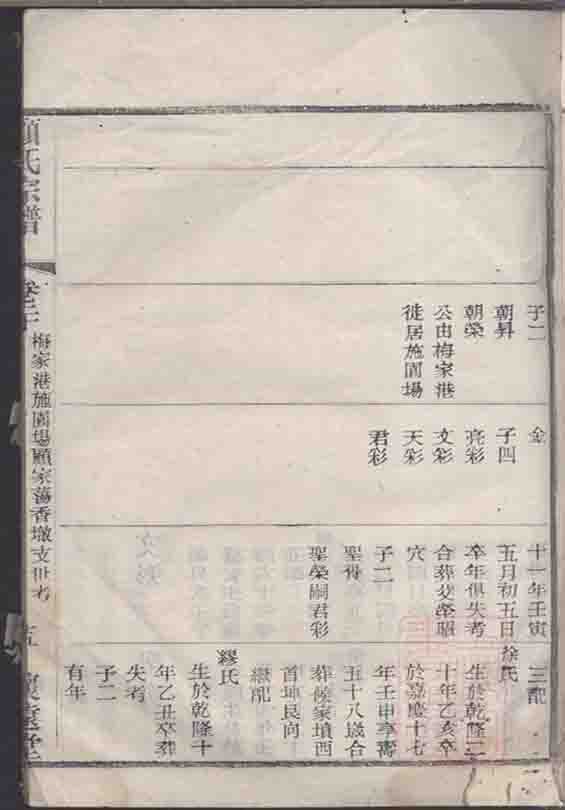 子二
朝昇
朝榮
公由梅家港
徙居施圖場
金
子四
亮彩
文彩
天彩
君彩
十一年壬寅
五月初五日
卒年俱失考
合葬父榮昭
穴
子二
聖骨
聖榮嗣君彩
三配
徐氏
生於乾隆二
十年乙亥卒
於嘉慶十七
年壬申享壽
五十八歲合
葬候家墳西
首坤艮向
繼配
繆氏
生於乾隆十
年乙丑卒葬
失考
子二
有年
顧氏宗譜
卷二十
梅家港施圖場顧家蕩香墩支世考
五